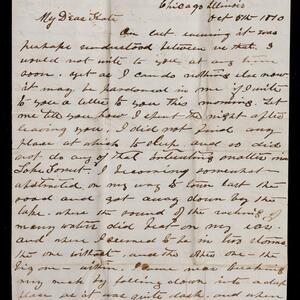 Chicago Illinois
Oct 8th 1870
My Dear Kate
On last evening it was
perhaps understood between us that I
would not write to you at any time
soon. yet as I can do nothing else now
it may be pardoned in me if I write
to you a letter to you this morning. Let
me tell you how I spent the night after
leaving you. I did not find any
place at which to sleep. and so did
not do any of that interesting matter in
Lake Forest. I becoming somewhat
abstracted on my way to town lost the
road and got away down by the
lake. where the sound of the rushing of
many waters did beat on my ears.
and where I seemed to be in two storms
the one without and the other one the
big one within. I came near breaking
my neck by falling down into a deep
place as it was quite dark. and when